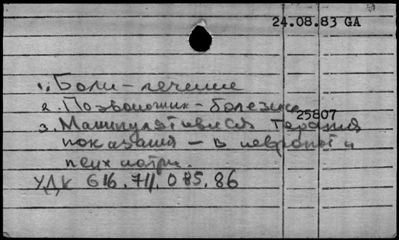 24.08.83 GA
1. Боли - лечение
2. Позвоночник - болезни
25807
3. Манипулятивная терапия
показания - в неврол. и
психиатри.
УДК 616.711.085.86